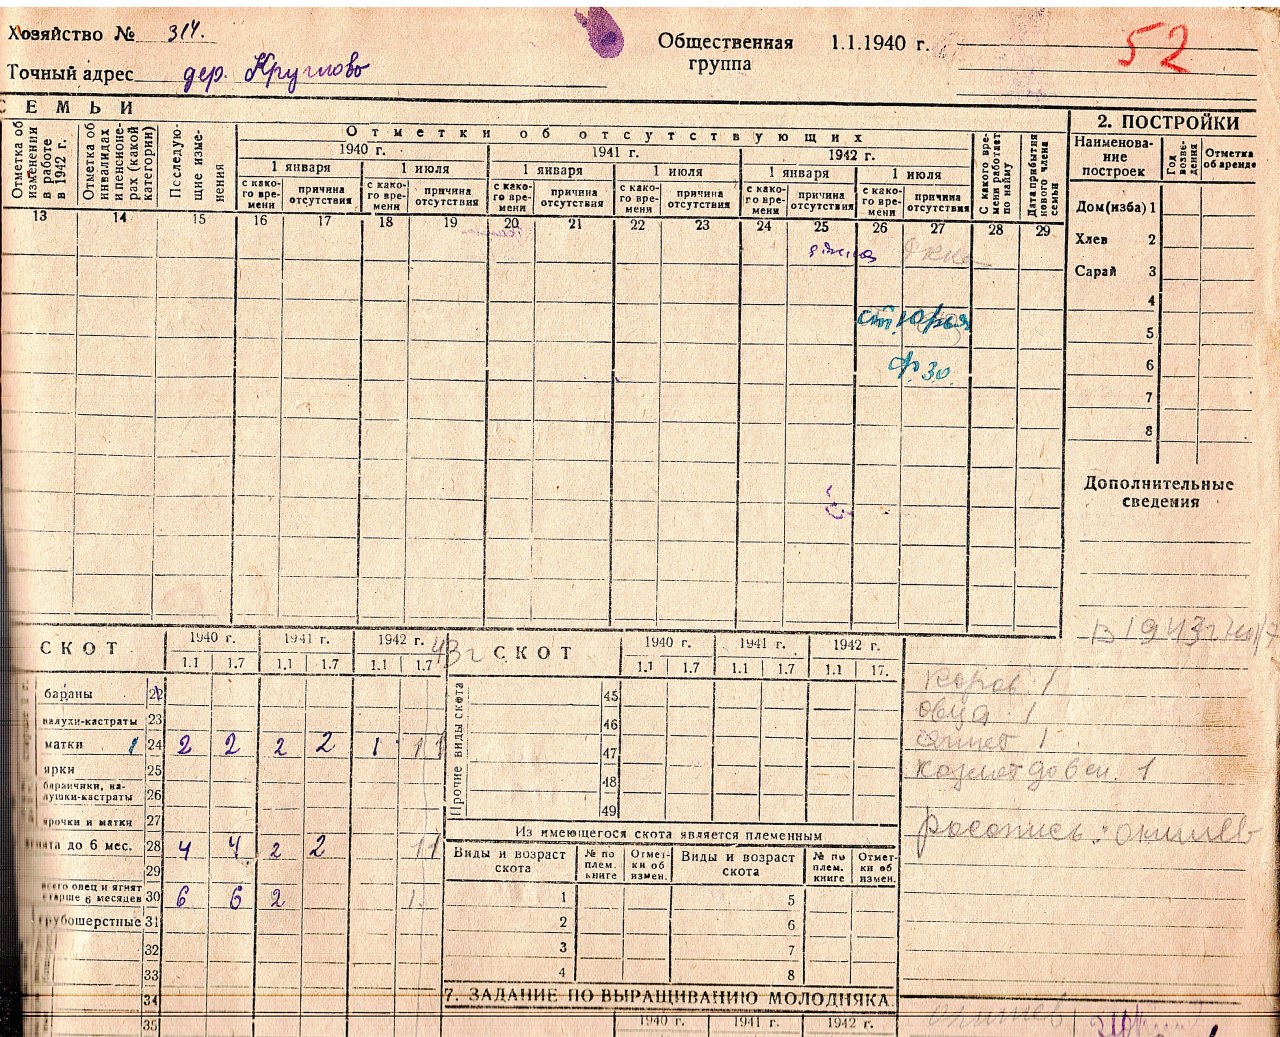 Хозяйство № 314.
Общественная группа 1.1.1940 г.
52
Точный адрес дер. Круглово
СЕМЬИ
Отметка об изменении в работе в 1942 г.
Отметка об инвалидах и пенсионерах (какой категории)
Последующие изменения
Отметки об отсутствующих
1940 г. 1941 г. 1942 г.
1 января 1 июля 1 января 1 июля 1 января 1 июля
с какого времени причина отсутствия с какого времени причина отсутствия с какого времени причина отсутствия с какого времени причина отсутствия с какого времени причина отсутствия с какого времени причина отсутствия
С какого времени работает по найму
Дата прибытия нового члена семьи
13 14 15 16 17 18 19 20 21 22 23 24 25 26 27 28 29
ф.зо.
2. ПОСТРОЙКИ
Наименование построек
Год возведения
Отметка об аренде
Дом(изба) 1
Хлев 2
Сарай 3
4
5
6
7
8
Дополнительные сведения
В 1943 г
коров 1
овца 1
1
1
роспись:
СКОТ 1940 г. 1941 г. 1942 г.
1.1 1.7 1.1 1.7 1.1 1.7 43 г
бараны 22
валухи-кастраты 23
матки 1 24 2 2 2 2 1 1
ярки 25
баранчики, валушки-кастраты 26
ярочки и матки 27
ягнята до 6 мес. 28 4 4 2 2 11
29
Всего овец и ягнят старше 6 месяцев 30 6 6 2 1.
грубошерстные 31
32
33
34
35
СКОТ 1940 г. 1941 г. 1942 г.
1.1 1.7 1.1 1.7 1.1 17.
Прочие виды скота
45
46
47
48
49
Из имеющегося скота является племенным
Виды и возраст скота № по плем. книге Отметки об измен. Виды и возраст скота № по плем. книге Отметки об измен.
1 5
2 6
3 7
4 8
7. ЗАДАНИЕ ПО ВЫРАЩИВАНИЮ МОЛОДНЯКА.
1940 г. 1941 г. 1942 г.